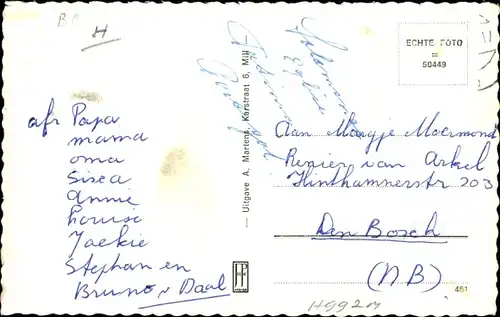 BP
H
ECHTE FOTO
=
50449
afz Papa
mama
oma
Sisca
Annie
Louise
Jackie
Stephan en
Bruno v Daal
— Uitgave A. Martens, Karstraat 6, Mill
Aan Margje Moermond
Renier van Arkel
Hinthammerstr 203
Den Bosch
(NB)
461
H992M